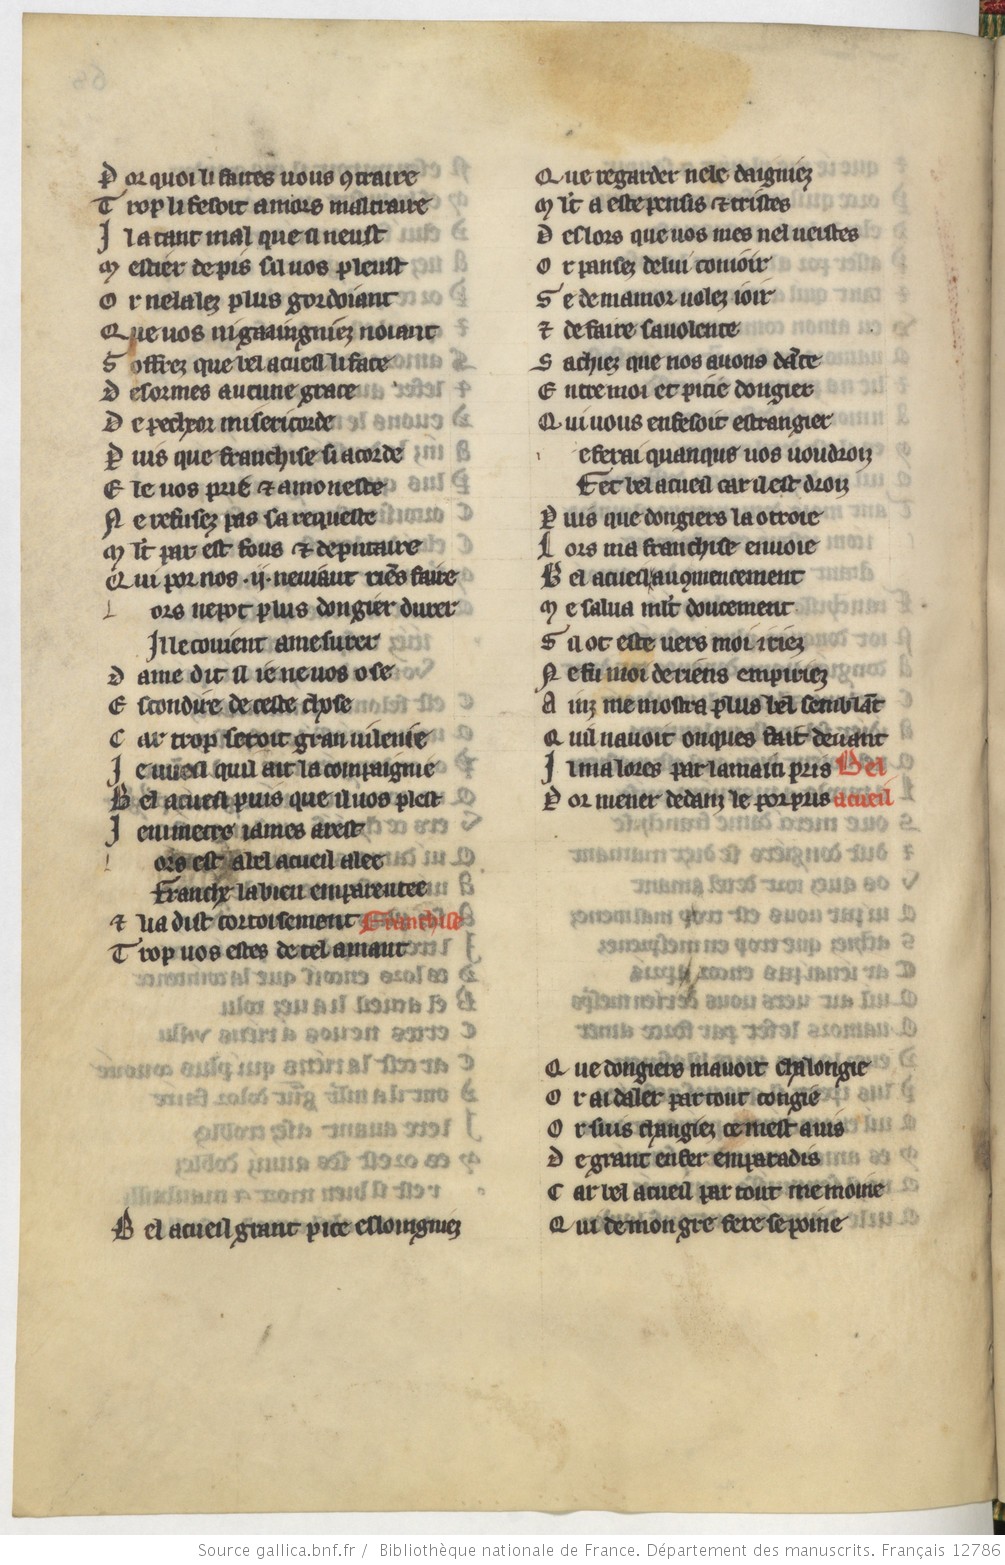 P or quoi li faites uous 9traire
T rop li fesoit amors mal traire
J l a tant mal que il neust
M estier de pis sil uos pleust
O r nel alez plus gordoiant
Q ue uos ni gaaingniez noiant
S offrez que bel acueil li face
D esormes aucune grace
D e pecheor misericorde
P uis que franchise si acorde
E le uos prie ⁊ amoneste
N e refusez pas sa requeste
M lt par est fous ⁊ deputaire
Q ui por nos .ij. ne uiaut riens faire
l ors ne pot plus dongier durer
Il le couient amesurer
D ame dit il ie ne uos ose
E scondire de ceste chose
C ar trop seroit gran uilenie
J e uueil quil ait la compaignie
B el acueil puis que il uos plest
J e ni metre iames arest
l ors est a bel acueil alee
Franche la bien emparentee
⁊ li a dist cortoisement Franchise
T rop uos estes de cel amant
B el acueil grant piece esloingniez
Q ue regarder ne le daigniez
M lt a este pensis ⁊ tristes
D es lors que uos mes nel ueistes
O r pansez de lui conioir
S e de mamor uolez ioir
⁊ de faire sa uolente
S achiez que nos auons dante
E ntre moi et pitie dongier
Q ui uous en fesoit estrangier
i e ferai quanque uos uoudroiz
Fet bel acueil car il est droiz
P uis que dongiers la otroie
L ors ma franchise enuoie
B el acueil au 9mencement
M e salua mlt doucement
S il ot este uers moi iriez
N e fu moi de riens empiriez
A inz me mostra plus bel semblant
Q uil nauoit onques fait deuant
J l ma lores par la main pris Bel
P or mener dedanz le porpris acueil
Q ue dongiers mauoit chalongie
O r ai daler par tout congie
O r suis changiez ce mest auis
D e grant enfer em paradis
C ar bel acueil par tout me moine
Q ui de mon gre fere se poine
Source gallica.bnf.fr / Bibliothèque nationale de France. Département des manuscrits. Français 12786